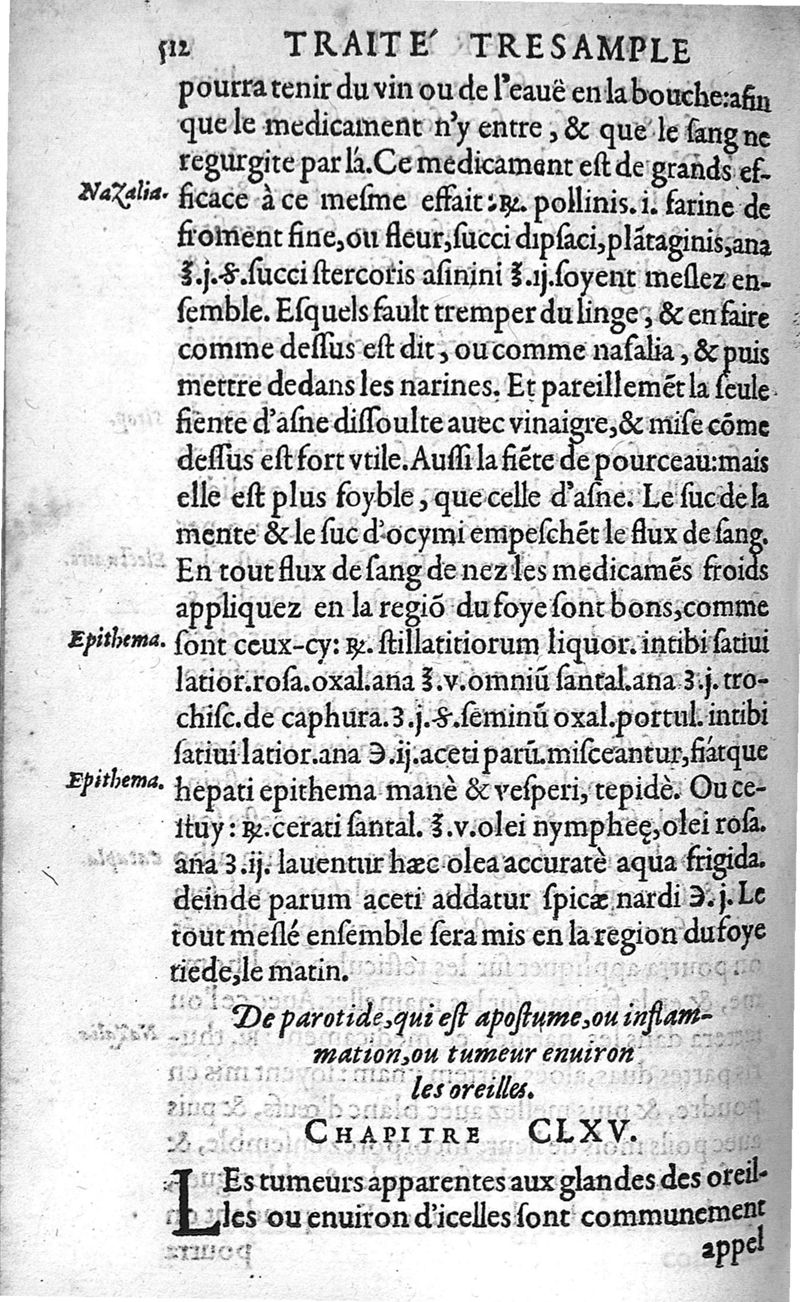 512 TRAITE´ TRESAMPLE
pourra tenir du vin ou de l'eauë en la bouche:afin
que le medicament n'y entre, & que le ſang ne
regurgite par là. Ce medicament eſt de grands ef-
NaZalia. ficace à ce meſme effait: ℞. pollinis. i. farine de
froment fine, ou fleur, ſucci dipſaci, plãtaginis, ana
℥.j.ß. ſucci ſtercoris aſinini ℥.ij. ſoyent meſlez en-
ſemble. Eſquels fault tremper du linge, & en faire
comme deſſus eſt dit, ou comme naſalia, & puis
mettre dedans les narines. Et pareillemẽt la ſeule
fiente d'aſne diſſoulte auec vinaigre, & miſe cõme
deſſus eſt fort vtile. Auſſi la fiẽte de pourceau: mais
elle eſt plus foyble, que celle d'aſne. Le ſuc de la
mente & le ſuc d'ocymi empeſchẽt le flux de ſang.
En tout flux de ſang de nez les medicamẽs froids
appliquez en la regiõ du foye ſont bons, comme
Epithema. ſont ceux-cy: ℞. ſtillatitiorum liquor. intibi ſatiui
latior. roſa. oxal. ana ℥.v. omniũ ſantal. ana ʒ.j. tro-
chiſc. de caphura. ʒ.j.ß. ſeminũ oxal. portul. intibi
ſatiui latior. ana ℈.ij. aceti parũ. miſceantur, fiátque
Epithema. hepati epithema manè & veſperi, tepidè. Ou ce-
ſtuy: ℞. cerati ſantal. ℥.v. olei nympheę, olei roſa.
ana ʒ.ij. lauentur hæc olea accuratè aqua frigida.
deinde parum aceti addatur ſpicæ nardi ℈.j. Le
tout meſlé enſemble ſera mis en la region du foye
tiede, le matin.
De parotide, qui eſt apoſtume, ou inflam-
mation, ou tumeur enuiron
les oreilles.
CHAPITRE CLXV.
LEs tumeurs apparentes aux glandes des oreil-
les ou enuiron d'icelles ſont communement
appel